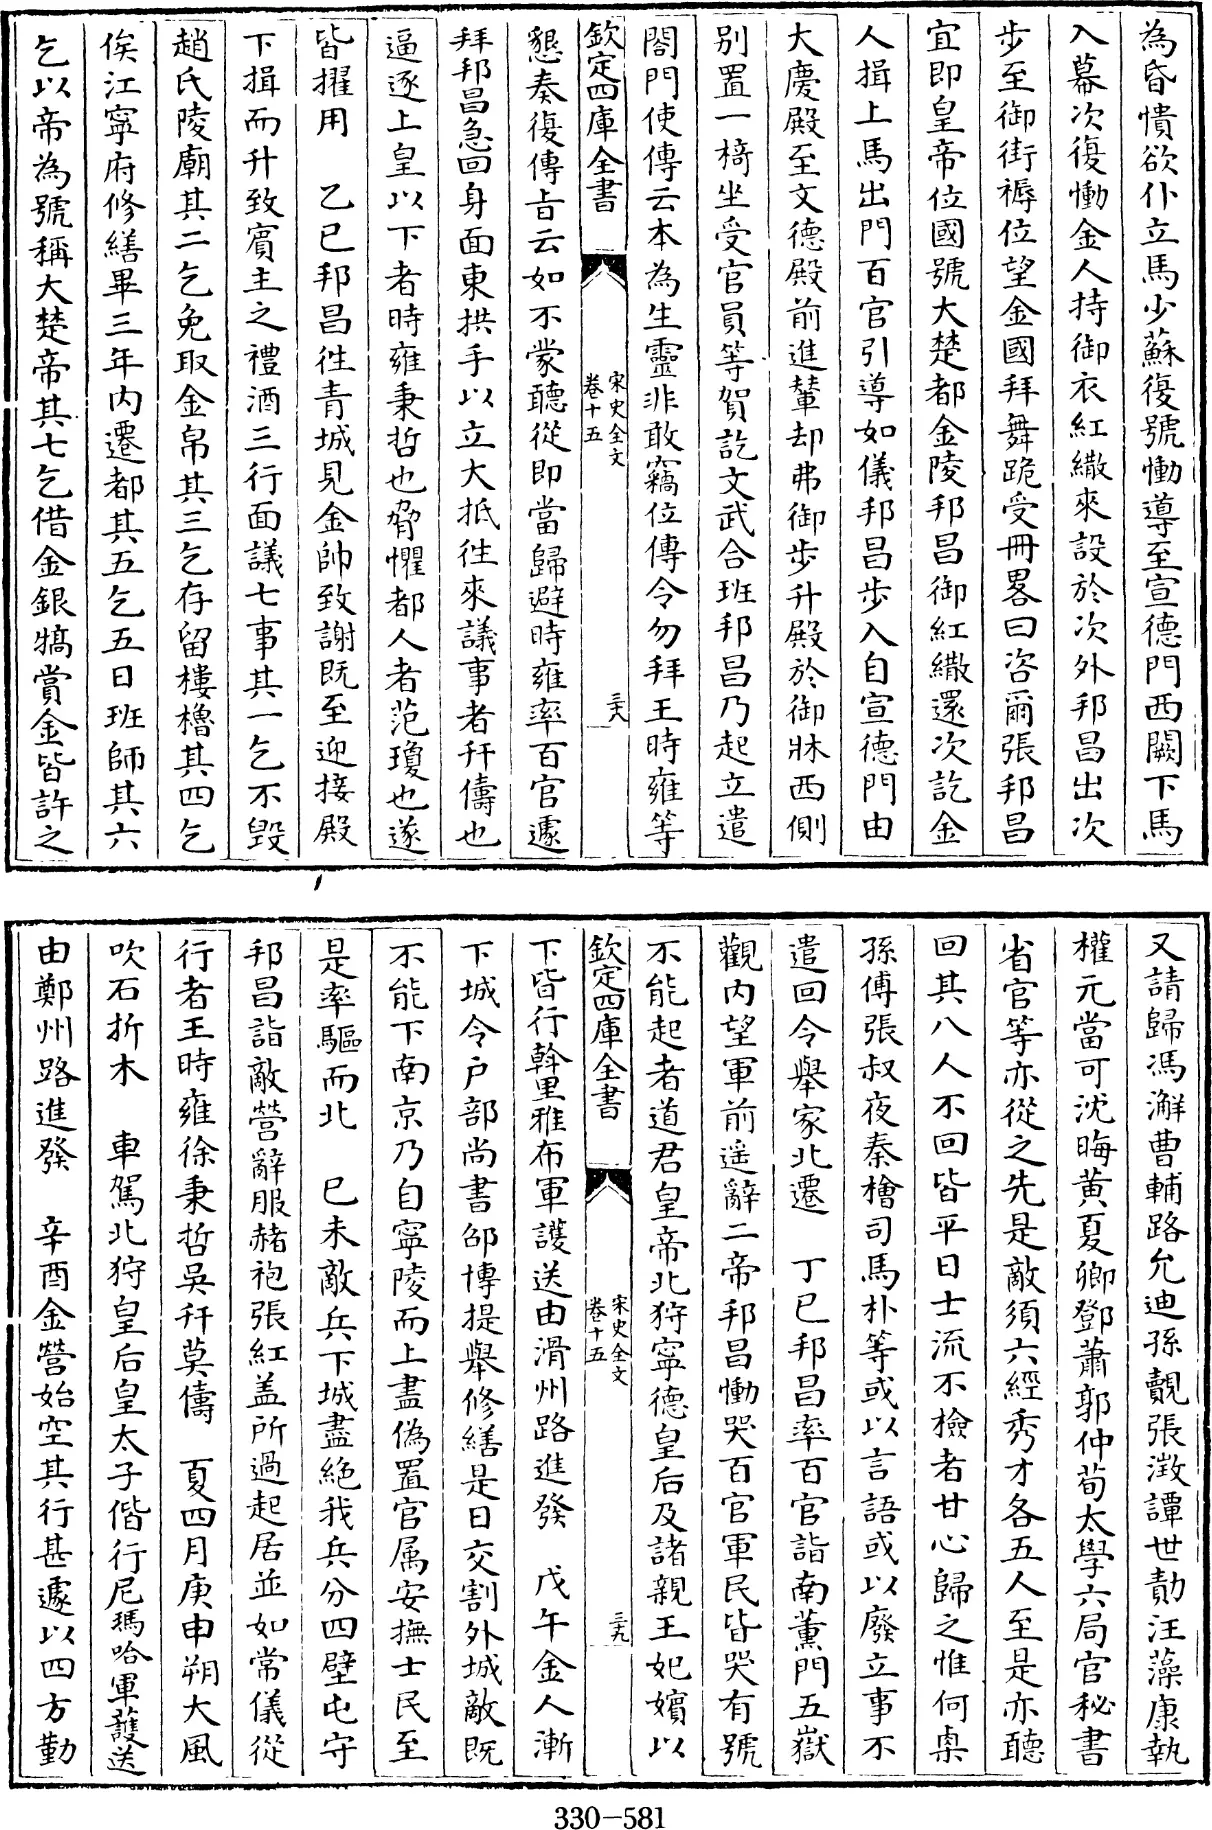 為昏憒欲仆立馬少蘇復號慟導至宣德門西闕下馬
入幕次復慟金人持御衣紅繖來設於次外邦昌出次
步至御街褥位望金國拜舞跪受冊畧曰咨爾張邦昌
宜即皇帝位國號大楚都金陵邦昌御紅繖還次訖金
人揖上馬出門百官引導如儀邦昌步入自宣德門由
大慶殿至文德殿前進輦却弗御步升殿於御牀西側
别置一椅坐受官員等賀訖文武合班邦昌乃起立遣
閤門使傳云本為生靈非敢竊位傳令勿拜王時雍等
欽定四庫全書
宋史全文
卷十五
三十八
懇奏復傳㫖云如不蒙聽從即當歸避時雍率百官遽
拜邦昌急回身面東拱手以立大抵徃來議事者幵儔也
逼逐上皇以下者時雍秉哲也脅懼都人者范瓊也遂
皆擢用 乙巳邦昌徃青城見金帥致謝既至迎接殿
下揖而升致賓主之禮酒三行面議七事其一乞不毁
趙氏陵廟其二乞免取金帛其三乞存留樓櫓其四乞
俟江寧府修繕畢三年内遷都其五乞五日班師其六
乞以帝為號稱大楚帝其七乞借金銀犒賞金皆許之
又請歸馮澥曹輔路允迪孫覿張澂譚世勣汪藻康執
權元當可沈晦黄夏卿鄧肅郭仲荀太學六局官秘書
省官等亦從之先是敵須六經秀才各五人至是亦聽
回其八人不回皆平日士流不檢者甘心歸之惟何㮚
孫傅張叔夜秦檜司馬朴等或以言語或以廢立事不
遣回令舉家北遷 丁巳邦昌率百官詣南薰門五嶽
觀内望軍前遥辭二帝邦昌慟哭百官軍民皆哭有號
不能起者道君皇帝北狩寧德皇后及諸親王妃嬪以
欽定四庫全書
宋史全文
卷十五
三十九
下皆行斡里雅布軍護送由滑州路進發 戊午金人漸
下城令户部尚書邵博提舉修繕是日交割外城敵既
不能下南京乃自寧陵而上盡偽置官属安撫士民至
是率驅而北 巳未敵兵下城盡絶我兵分四壁屯守
邦昌詣敵營辭服赭袍張紅盖所過起居並如常儀從
行者王時雍徐秉哲吳幵莫儔 夏四月庚申朔大風
吹石折木 車駕北狩皇后皇太子偕行尼瑪哈軍護送
由鄭州路進發 辛酉金營始空其行甚遽以四方勤
330-581